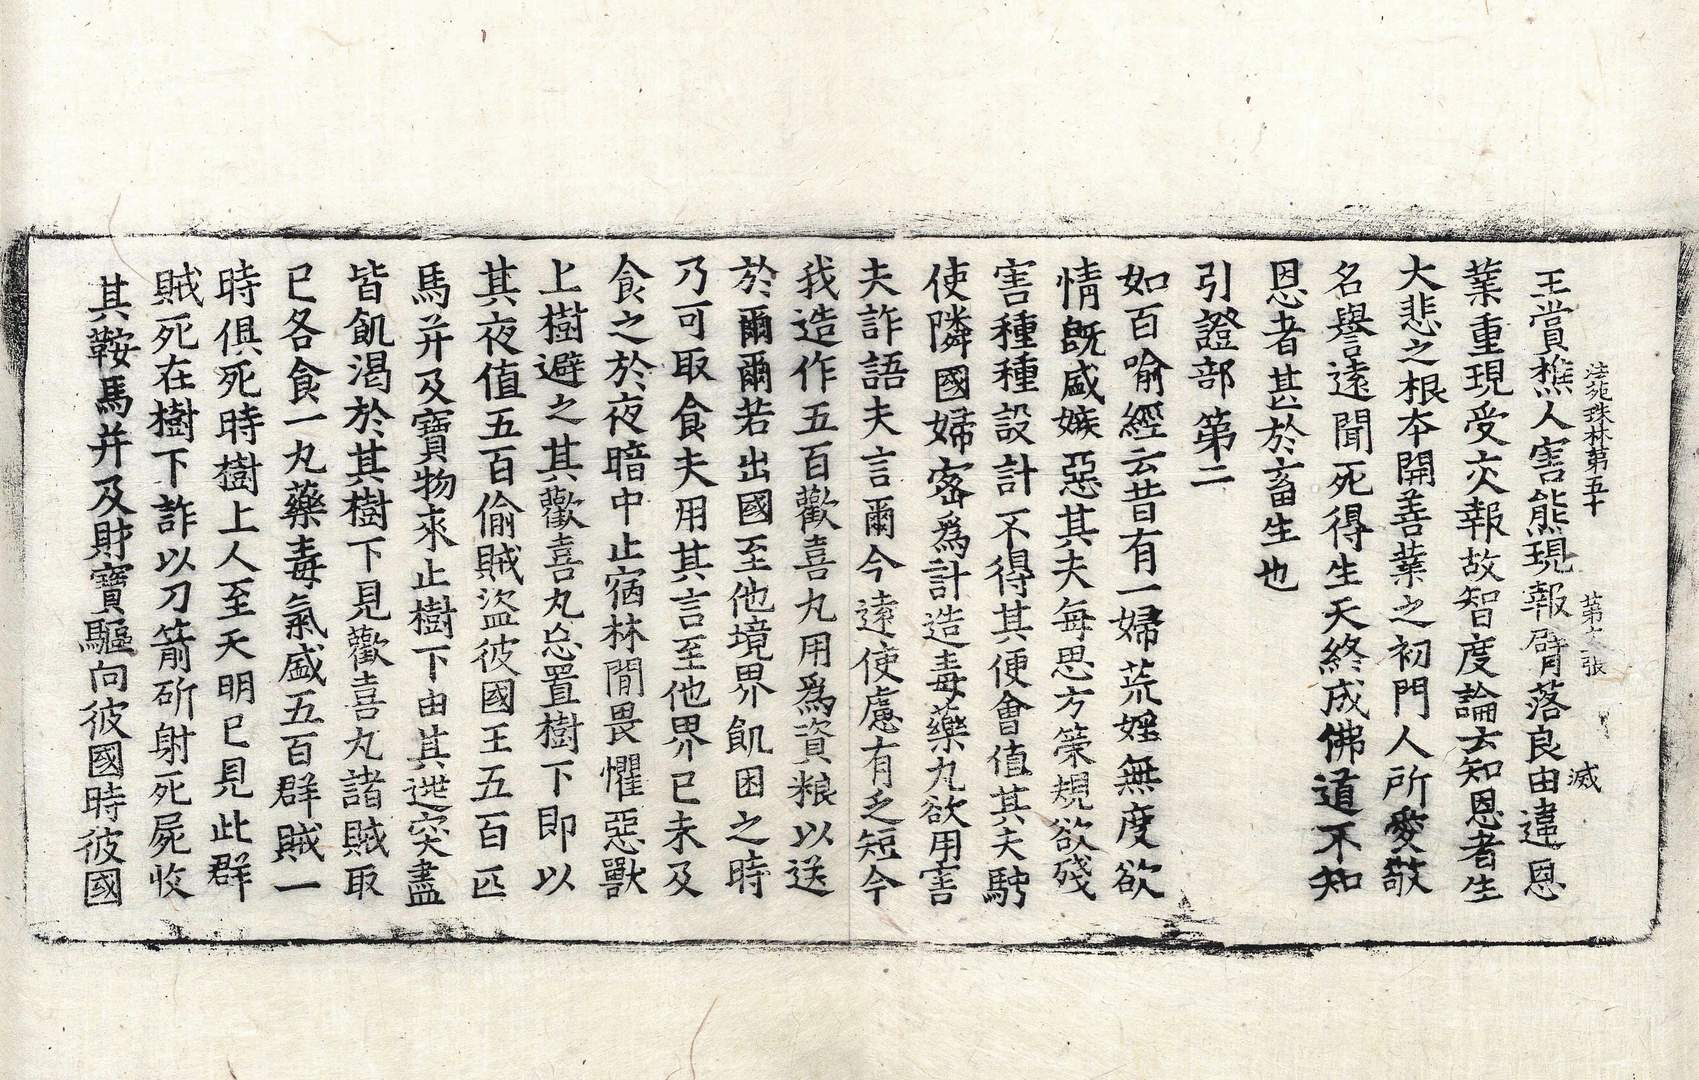 法苑珠林第五十 第六張 㓕
王賞樵人害熊現報臂落良由違恩
業重現受交報故智度論云知恩者生
大悲之根本開善業之初門人所愛敬
名譽遠聞死得生天終成佛道不知
恩者甚於畜生也
引證部第二
如百喻經云昔有一婦荒婬無度欲
情旣盛嫉惡其夫每思方策規欲殘
害種種設計不得其便會值其夫騁
使隣國婦密爲計造毒藥丸欲用害
夫詐語夫言爾今遠使慮有乏短今
我造作五百歡喜丸用爲資粮以送
於爾爾若出國至他境界飢困之時
乃可取食夫用其言至他界已未及
食之於夜暗中止宿林間畏懼惡獸
上樹避之其歡喜丸忘置樹下即以
其夜值五百偷賊盜彼國王五百匹
馬幷及寶物來止樹下由其逃突盡
皆飢渴於其樹下見歡喜丸諸賊取
已各食一丸藥毒氣盛五百群賊一
時俱死時樹上人至天明已見此群
賊死在樹下詐以刀箭斫射死屍收
其鞍馬幷及財寶驅向彼國時彼國